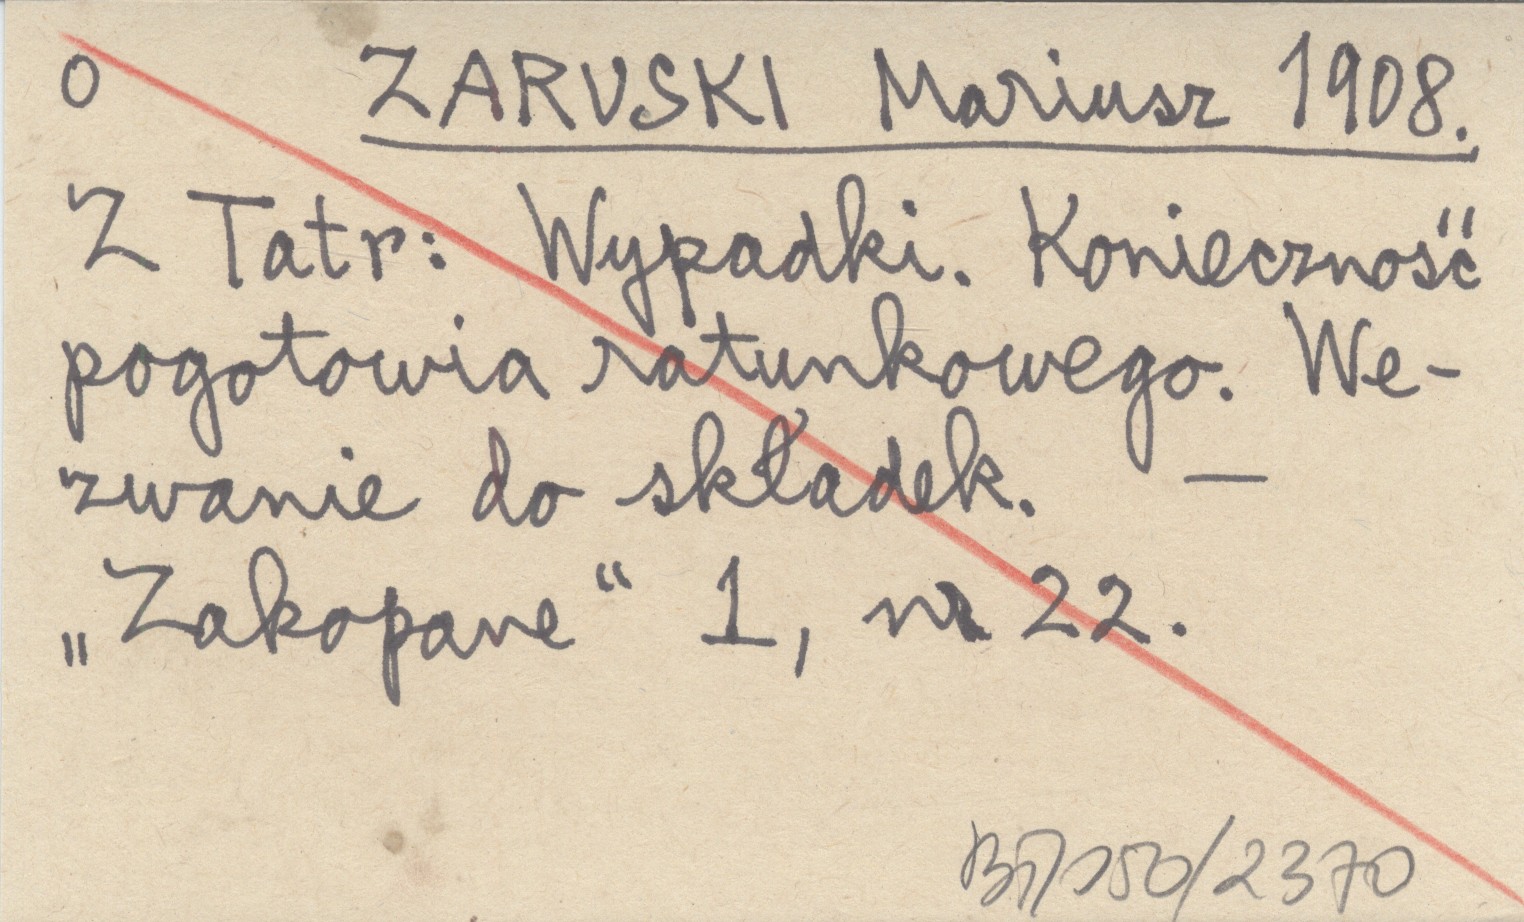 O ZARUSKI Mariusz 1908.
Z Tatr: Wypadki. Konieczność
pogotowia ratunkowego. We-
zwanie do składek. —
„Zakopane“ 1, nr 22.
/2370